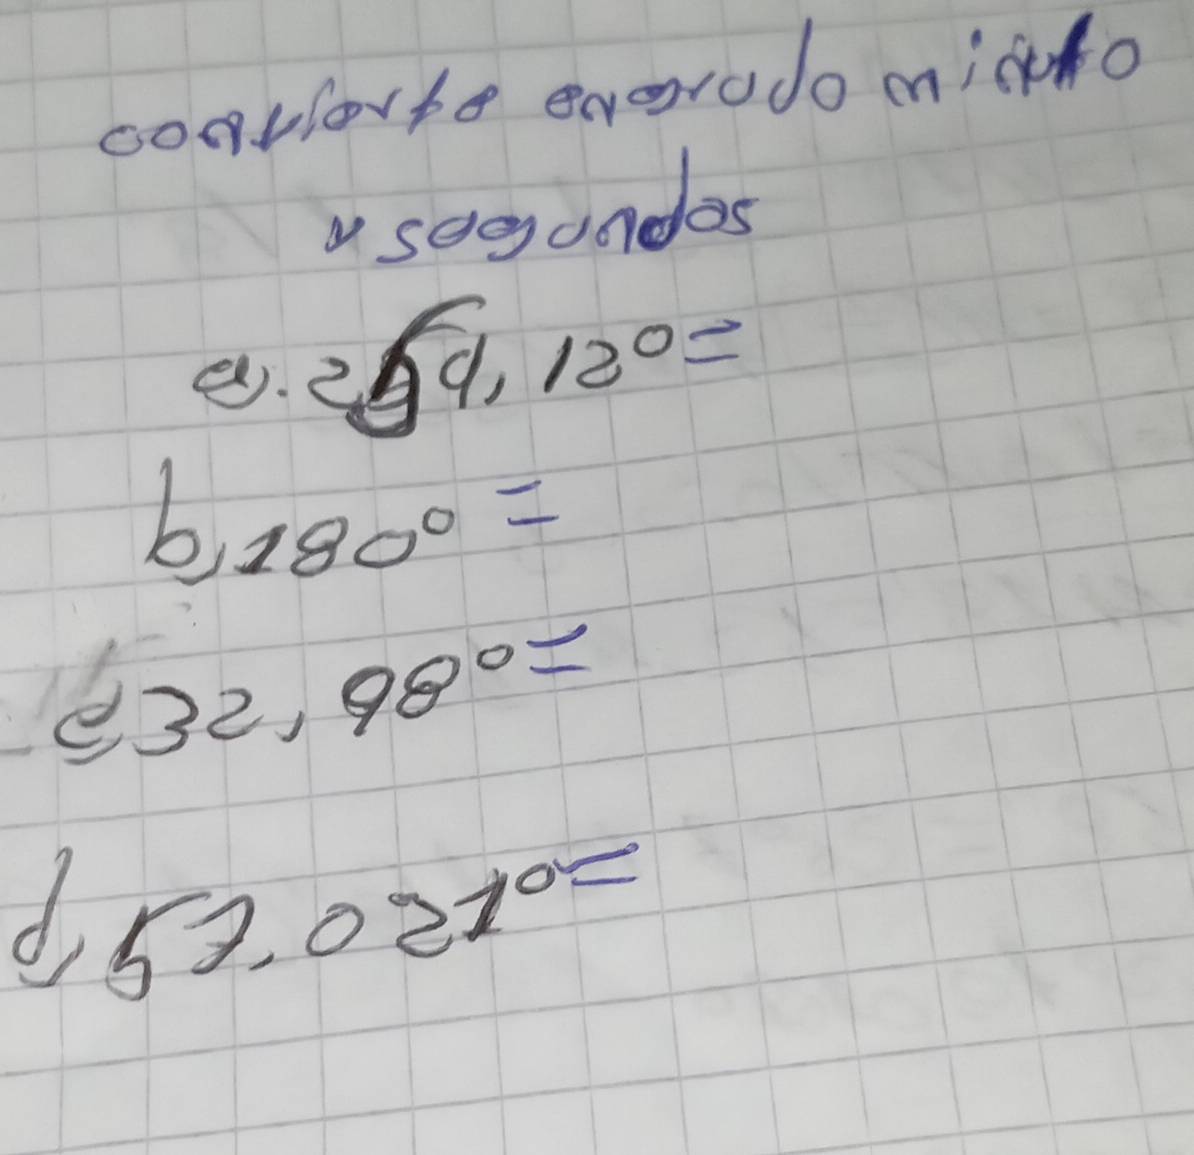 convierte en grado minuto
y segundos
a). 254, 12° =
b, 180° =
c, 32, 98° =
d, 57, 021° =